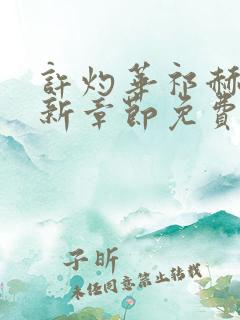 許灼華祁赫
新章節免費
子昕
未经同意禁止转载